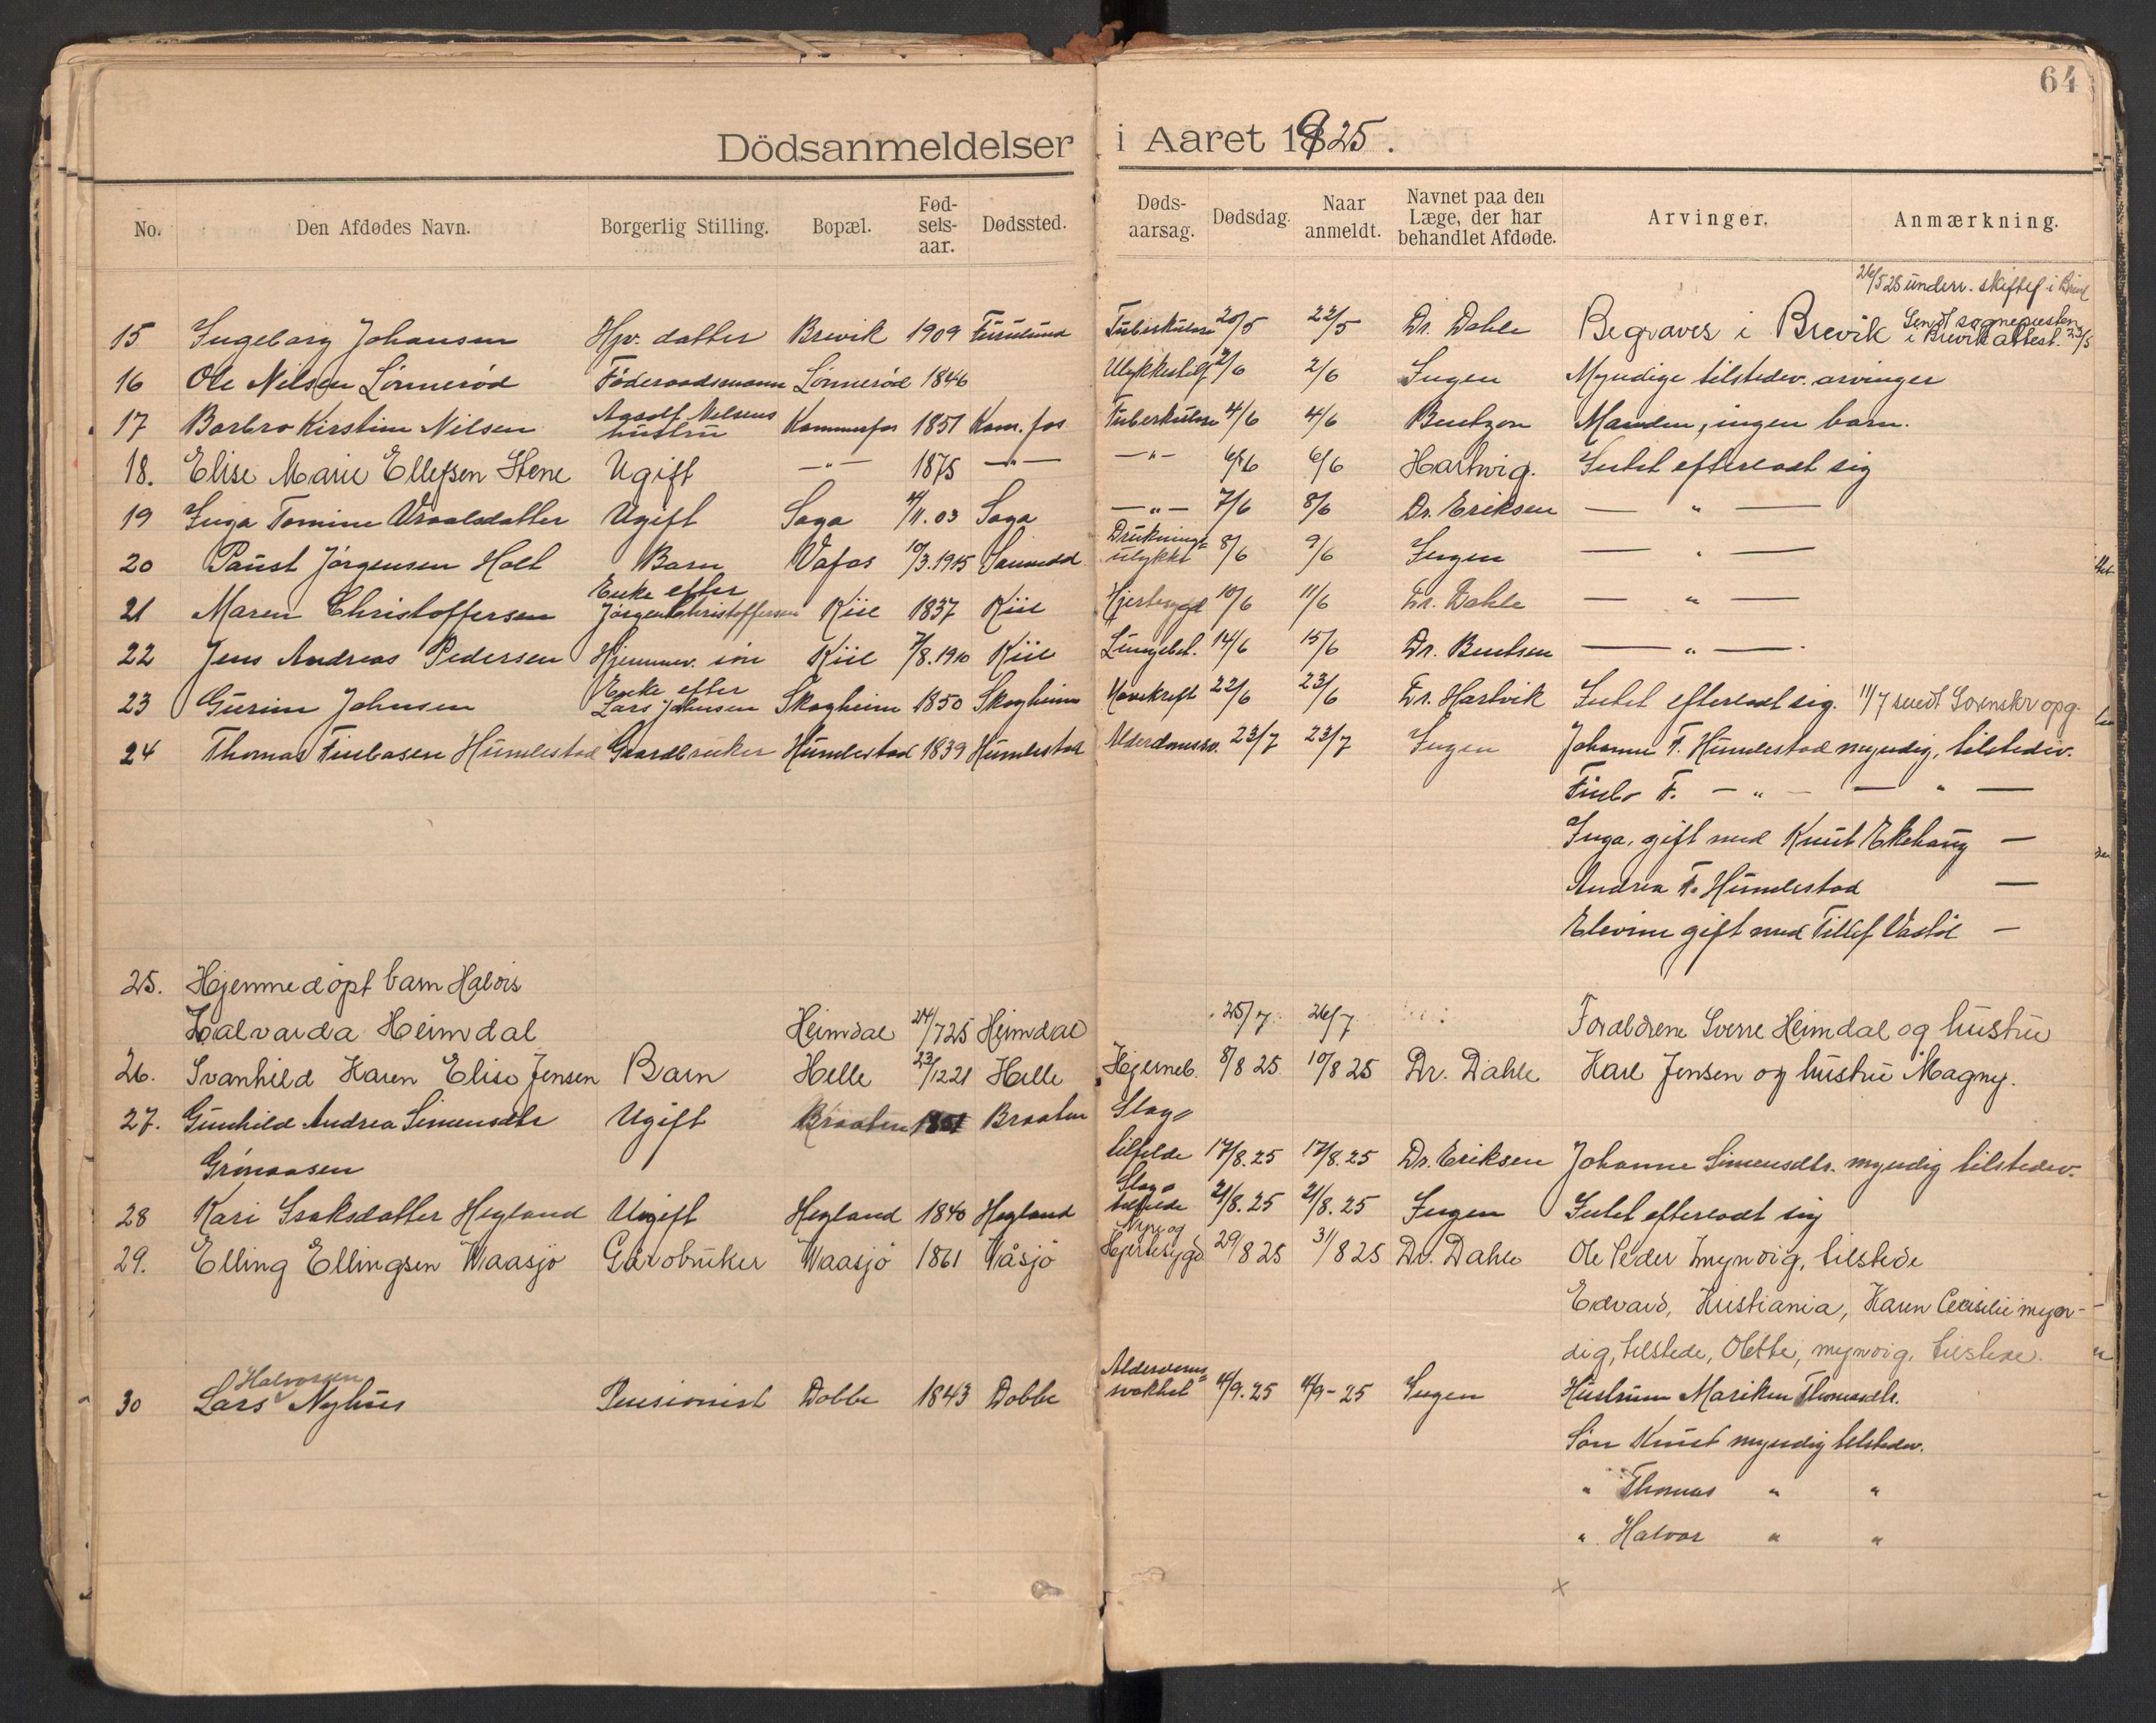 64
Dödsanmeldelser i Aaret 1925.
No. Den Afdødes Navn. Borgerlig Stilling. Bopæl. Fød-sels-aar. Dødssted. Døds-aarsag. Dødsdag. Naar anmeldt. Navnet paa den Læge, der har behandlet Afdøde. Arvinger. Anmærkning.
26/5 25 underr. skiftef i
15 Ingeborg Johansen Hjv. datter Brevik 1909 Furulund Tuberkulose 20/5 22/5 Dr. Dahle Begraves i Brevik Sendt sognepresten i Brevik attest. 23/5
16 Ole Nilsen Lönnerød Föderaadsmann Lönnerød 1846 Ulykkestilf 2/6 2/6 Ingen Myndige tilstedev. arvinger
17 Barbro Kirstine Nilsen Nilsens hustru Kammerfos 1851 Kam.fos Tuberkulose 4/6 4/6 Bentzon Manden, ingen barn.
18. Elise Marie Ellefsen Stene Ugift —"— 1875 —"— —"— 6/6 6/6 Hartwig. Intet efterladt sig
19 Inga Tomine Vraalsdatter Ugift Saga 4/11.03 Saga —"— 7/6 8/6 Dr. Eriksen — " —
20 Paust Jörgensen Holt Barn Vafos 10/3.1915 Druknings= ulykke 8/6 9/6 Ingen — " —
21 Maren Christoffersen Enke efter Jörgen Christoffersen Kiil 1837 Kiil Hjertesygd 10/6 11/6 Dr. Dahle — " —
22 Jens Andreas Pedersen Hjemmev. sön Kiil 7/8.1910 Kiil Lungebet. 14/6 15/6 Dr. Bentsen — " —
23 Gurine Johnsen Enke efter Lars Johnsen Skogheim 1850 Skogheim Mavekreft 22/6 23/6 Dr. Hartvik Intet efterladt sig. 11/7 sendt Sorenskr opg.
24 Thomas Finboesen Humlestad Gaardbruker Humlestad 1839 Humlestad Alderdomssv. 23/7 23/7 Ingen Johanne T. Humlestad myndig, tilstedev.
Finbo T. — " — — " —
Inga, gift med Knut Ekehaug —
Andrea T. Humlestad —
Elevine gift med Tellef Vastöl —
25. Hjemmedöpt barn Halvis
Halvarda Heimdal Heimdal 24/7 25 Heimdal 25/7 26/7 Foraldrene Sverre Heimdal og hustru
26. Svanhild Karen Elise Jensen Barn Helle 23/12 21 Helle Hjerneb. 8/8 25 10/8 25 Dr. Dahle Karl Jensen og hustru Magny.
27. Gunhild Andrea Simensdtr Ugift Braaten Braaten Slag=
Grönaasen tilfelde 17/8.25 17/8.25 Dr. Eriksen Johanne Simensdtr. myndig tilstedev.
28 Kari Isaksdatter Hegland Ugift Hegland 1840 Hegland Slag= tilfelde 21/8.25 21/8.25 Ingen Intet efterladt sig
29. Elling Ellingsen Waasjö Gardbruker Waasjö 1861 Våsjö Nyre og Hjertesygd 29/8 25 31/8 25 Dr. Dahle Ole Peder myndig, tilstede
Edvard, Kristiania, Karen Cecisilie myn-
dig, tilstede, Olette, myndig, tilstede.
30 Lars Halvorsen Nyhus Pensionist Dobbe 1843 Dobbe Alderdoms= svakhet 4/9.25 4/9-25 Ingen Hustruen Mariken Thomasdtr.
Sön Knut myndig tilstedev.
" Thomas " "
" Halvor " "
x